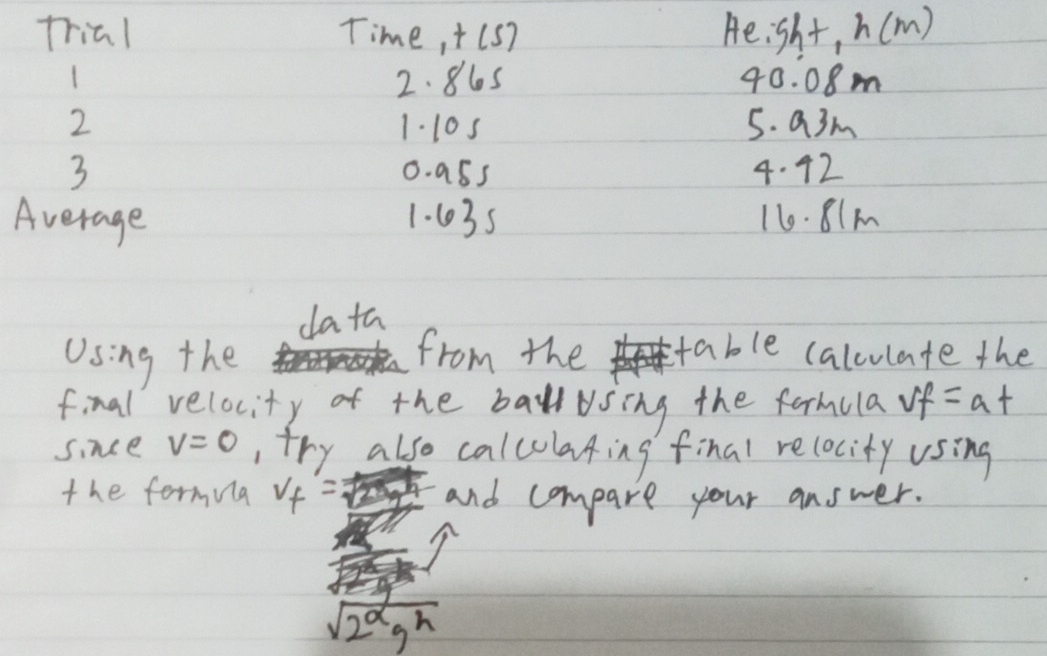 Trial Time, t(s) Height, h(m)
1 2.86s 40.08m
2 1.10s 5.93m
3 0.95s 4.42
Average 1.63s 16.81m
data
Using the from the table calculate the
final velocity of the ball using the formula vf = at
since v=0, try also calculating final velocity using
the formula vf = and compare your answer.
√2agh